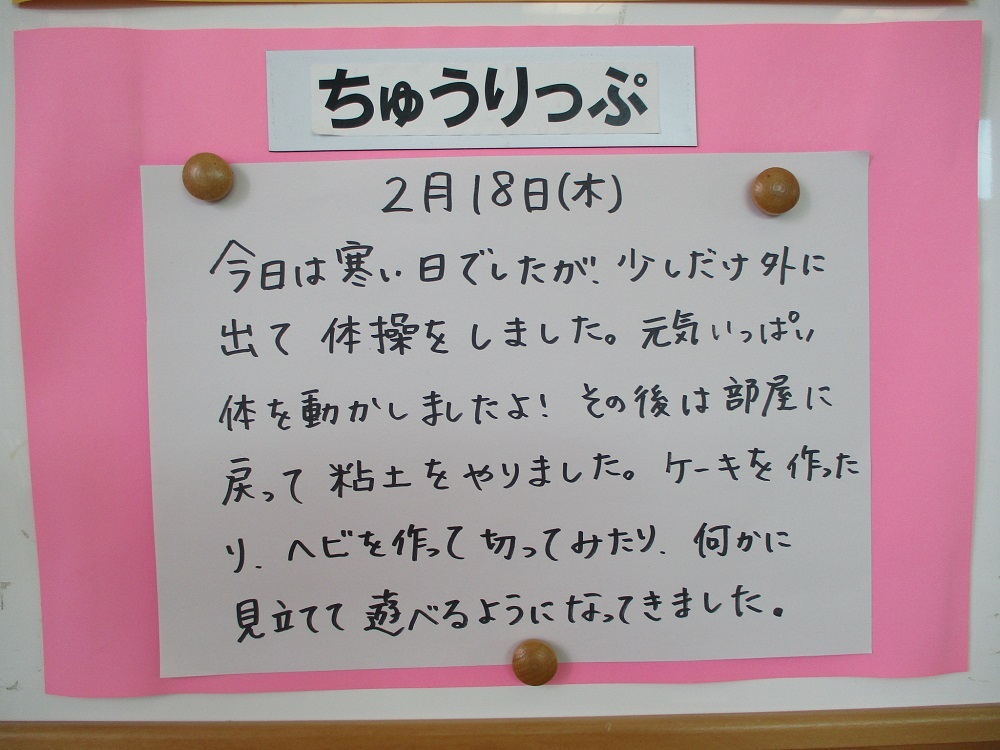 ちゅうりっぷ
2月18日(木)
今日は寒い日でしたが、少しだけ外に
出て体操をしました。元気いっぱい
体を動かしましたよ！その後は部屋に
戻って粘土をやりました。ケーキを作った
り、ヘビを作って切ってみたり、何かに
見立てて遊べるようになってきました。